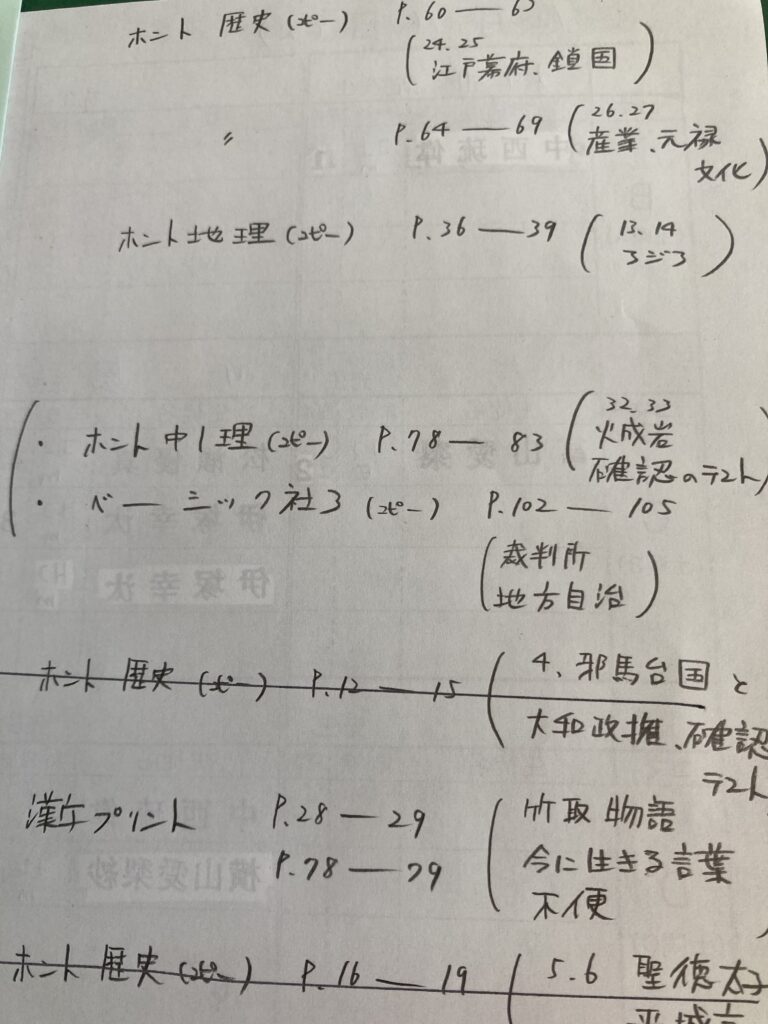 ホント 歴史 (コピー) P.60 — 63
(24.25
江戸幕府、鎖国)
〃 P.64 — 69 (26.27
産業、元禄
文化)
ホント地理 (コピー) P.36 — 39 (13、14
アジア)
・ ホント中1理 (コピー) P.78 — 83 (32.33
火成岩
確認のテスト)
・ ベーシック社3 (コピー) P.102 — 105
(裁判所
地方自治)
ホント 歴史 (コピー) P.12 — 15 (4、邪馬台国と
大和政権、確認
テスト
漢字プリント P.28 — 29 (竹取物語
P.78 — 79 今に生きる言葉
不便)
ホント 歴史 (コピー) P.16 — 19 (5.6 聖徳太子
平城京